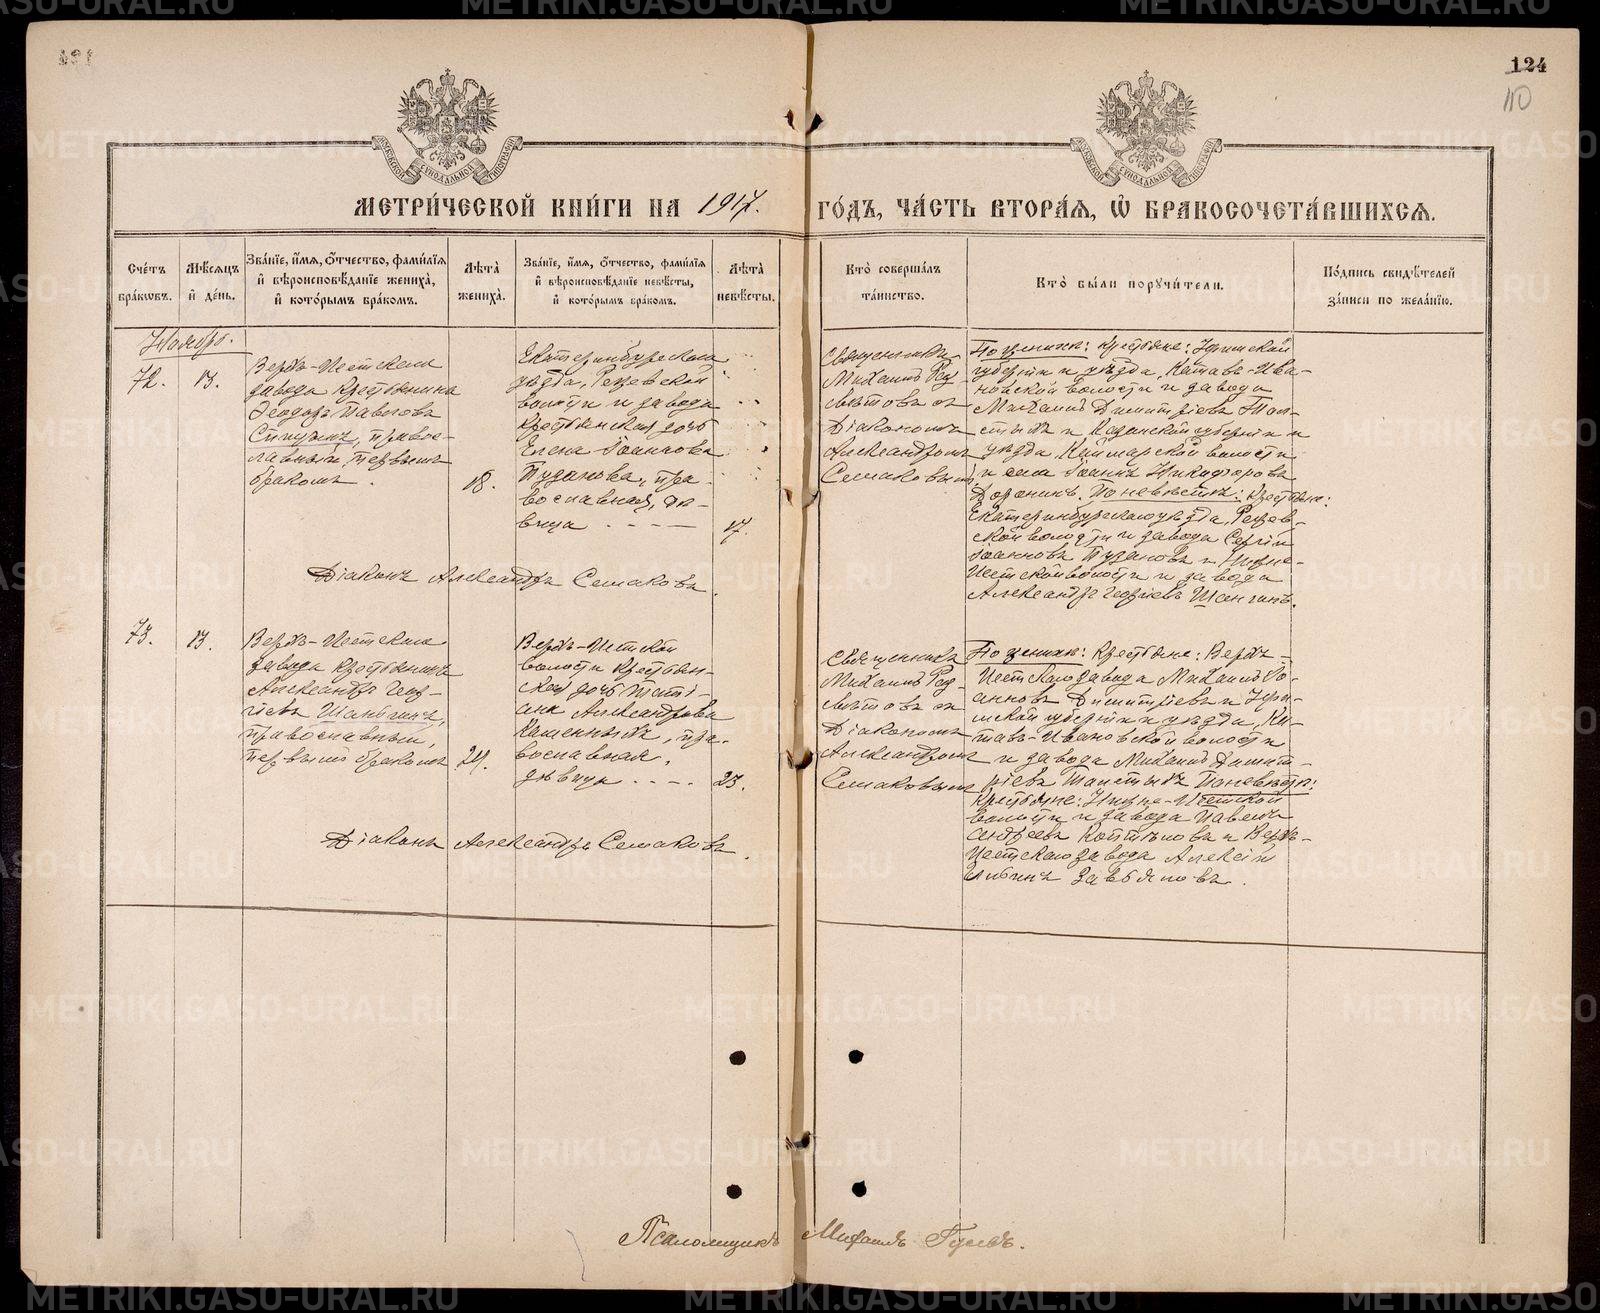 124
110
МОСКОВСКОЙ СѴНОДАЛЬНОЙ ТИПОГРАФІИ
МОСКОВСКОЙ СѴНОДАЛЬНОЙ ТИПОГРАФІИ
МЕТРИ́ЧЕСКОЙ КНИ́ГИ НА 1917. ГО́ДЪ, ЧА́СТЬ ВТОРА́Я, Ѡ҆ БРАКОСОЧЕТА́ВШИХСЯ.
Сче́тъ бра́кѡвъ.
Мѣ́сяцъ и҆ де́нь.
Зва́нїе, и҆́мя, ѻ҆́тчество, фами́лїя и҆ вѣроисповѣ́данїе жениха̀, и҆ кото́рымъ бра́комъ.
Лѣ́та жениха̀.
Зва́нїе, и҆́мя, ѻ҆́тчество, фами́лїя и҆ вѣроисповѣ́данїе невѣ́сты, и҆ кото́рымъ бра́комъ.
Лѣ́та невѣ́сты.
Кто̀ соверша́лъ та́инство.
Кто̀ бы́ли порꙋчи́тели.
По́дпись свидѣ́телей за́писи по жела́нїю.
Ноябрь.
72.
13.
Верхъ-Исетскаго
завода крестьянинъ
Ѳеодоръ Павловъ
православный, первымъ
бракомъ.
18.
Екатеринбургскаго
уѣзда, Режевской
волости и завода
крестьянская дочь
Елена Іоаннова
Пузанова, пра-
вославная, дѣ-
вица
17.
Священникъ
Михаилъ
съ
Діакономъ
Александромъ
Семаковымъ
По женихѣ: крестьяне: Уфимской
губерніи и уѣзда, Катавъ-Ива-
новской волости и завода
Михаилъ Димитріевъ Тол-
стыхъ и Казанской губерніи и
уѣзда, Каймарской волости
и села Іоаннъ Никифоровъ
Доронинъ. По невѣстѣ: крестьяне:
Екатеринбургскаго уѣзда, Режев-
ской волости и завода Сергій
Іоанновъ Пузановъ и Нижне-
Исетской волости и завода
Александръ Георгіевъ Шаньгинъ.
Діаконъ Александръ Семаковъ.
73.
13.
Верхъ-Исетскаго
завода крестьянинъ
Александръ Геор-
гіевъ Шаньгинъ,
православный,
первымъ бракомъ
24.
Верхъ-Исетской
волости крестьян-
ская дочь Тати-
ана Александрова
Каменныхъ, пра-
вославная,
дѣвица
23.
Священникъ
Михаилъ
съ
Діакономъ
Александромъ
Семаковымъ
По женихѣ: крестьяне: Верхъ-
Исетскаго завода Михаилъ Іо-
анновъ Димитріевъ и Уфи-
мской губерніи и уѣзда, Ка-
тавъ-Ивановской волости
и завода Михаилъ Димит-
ріевъ Толстыхъ. По невѣстѣ:
крестьяне: Нижне-Исетской
волости и завода Павелъ
Андреевъ Коптѣловъ и Верхъ-
Исетскаго завода Алексій
Завьяловъ.
Діаконъ Александръ Семаковъ.
Псаломщикъ Михаилъ Гусевъ.
METRIKI.GASO-URAL.RU